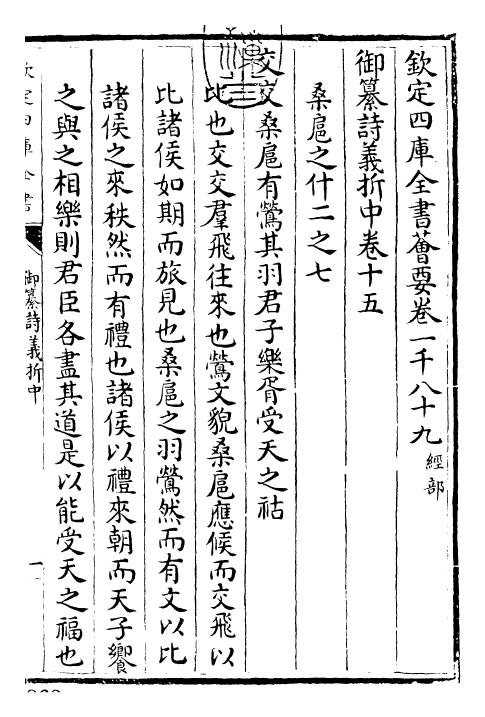 欽定四庫全書薈要卷一千八十九 經部
御纂詩義折中卷十五
桑扈之什二之七
交交桑扈有鶯其羽君子樂胥受天之祜
比也交交羣飛往來也鶯文貌桑扈應候而交飛以
比諸侯如期而旅見也桑扈之羽鶯然而有文以比
諸侯之來秩然而有禮也諸侯以禮來朝而天子饗
之與之相樂則君臣各盡其道是以能受天之福也
欽定四庫全書
御纂詩義折中
一